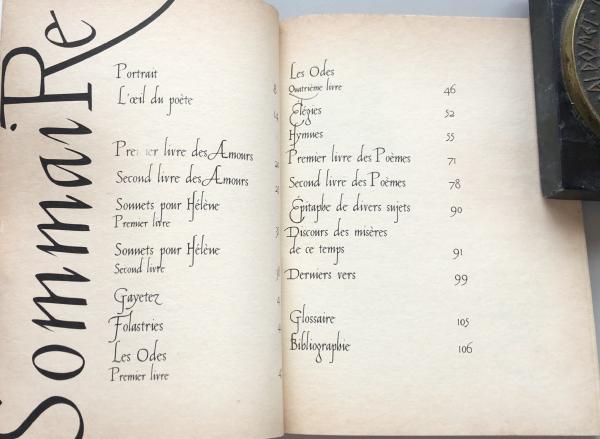 SommaiRe
Portrait
L'œil du poète
Premier livre des Amours
Second livre des Amours
Sonnets pour Hélène
Premier livre
Sonnets pour Hélène
Second livre
Gayetez
Folastries
Les Odes
Premier livre
Les Odes
Quatrième livre 46
Elégies 52
Hymnes 55
Premier livre des Poèmes 71
Second livre des Poèmes 78
Epitaphe de divers sujets 90
Discours des misères
de ce temps 91
Derniers vers 99
Glossaire 105
Bibliographie 106